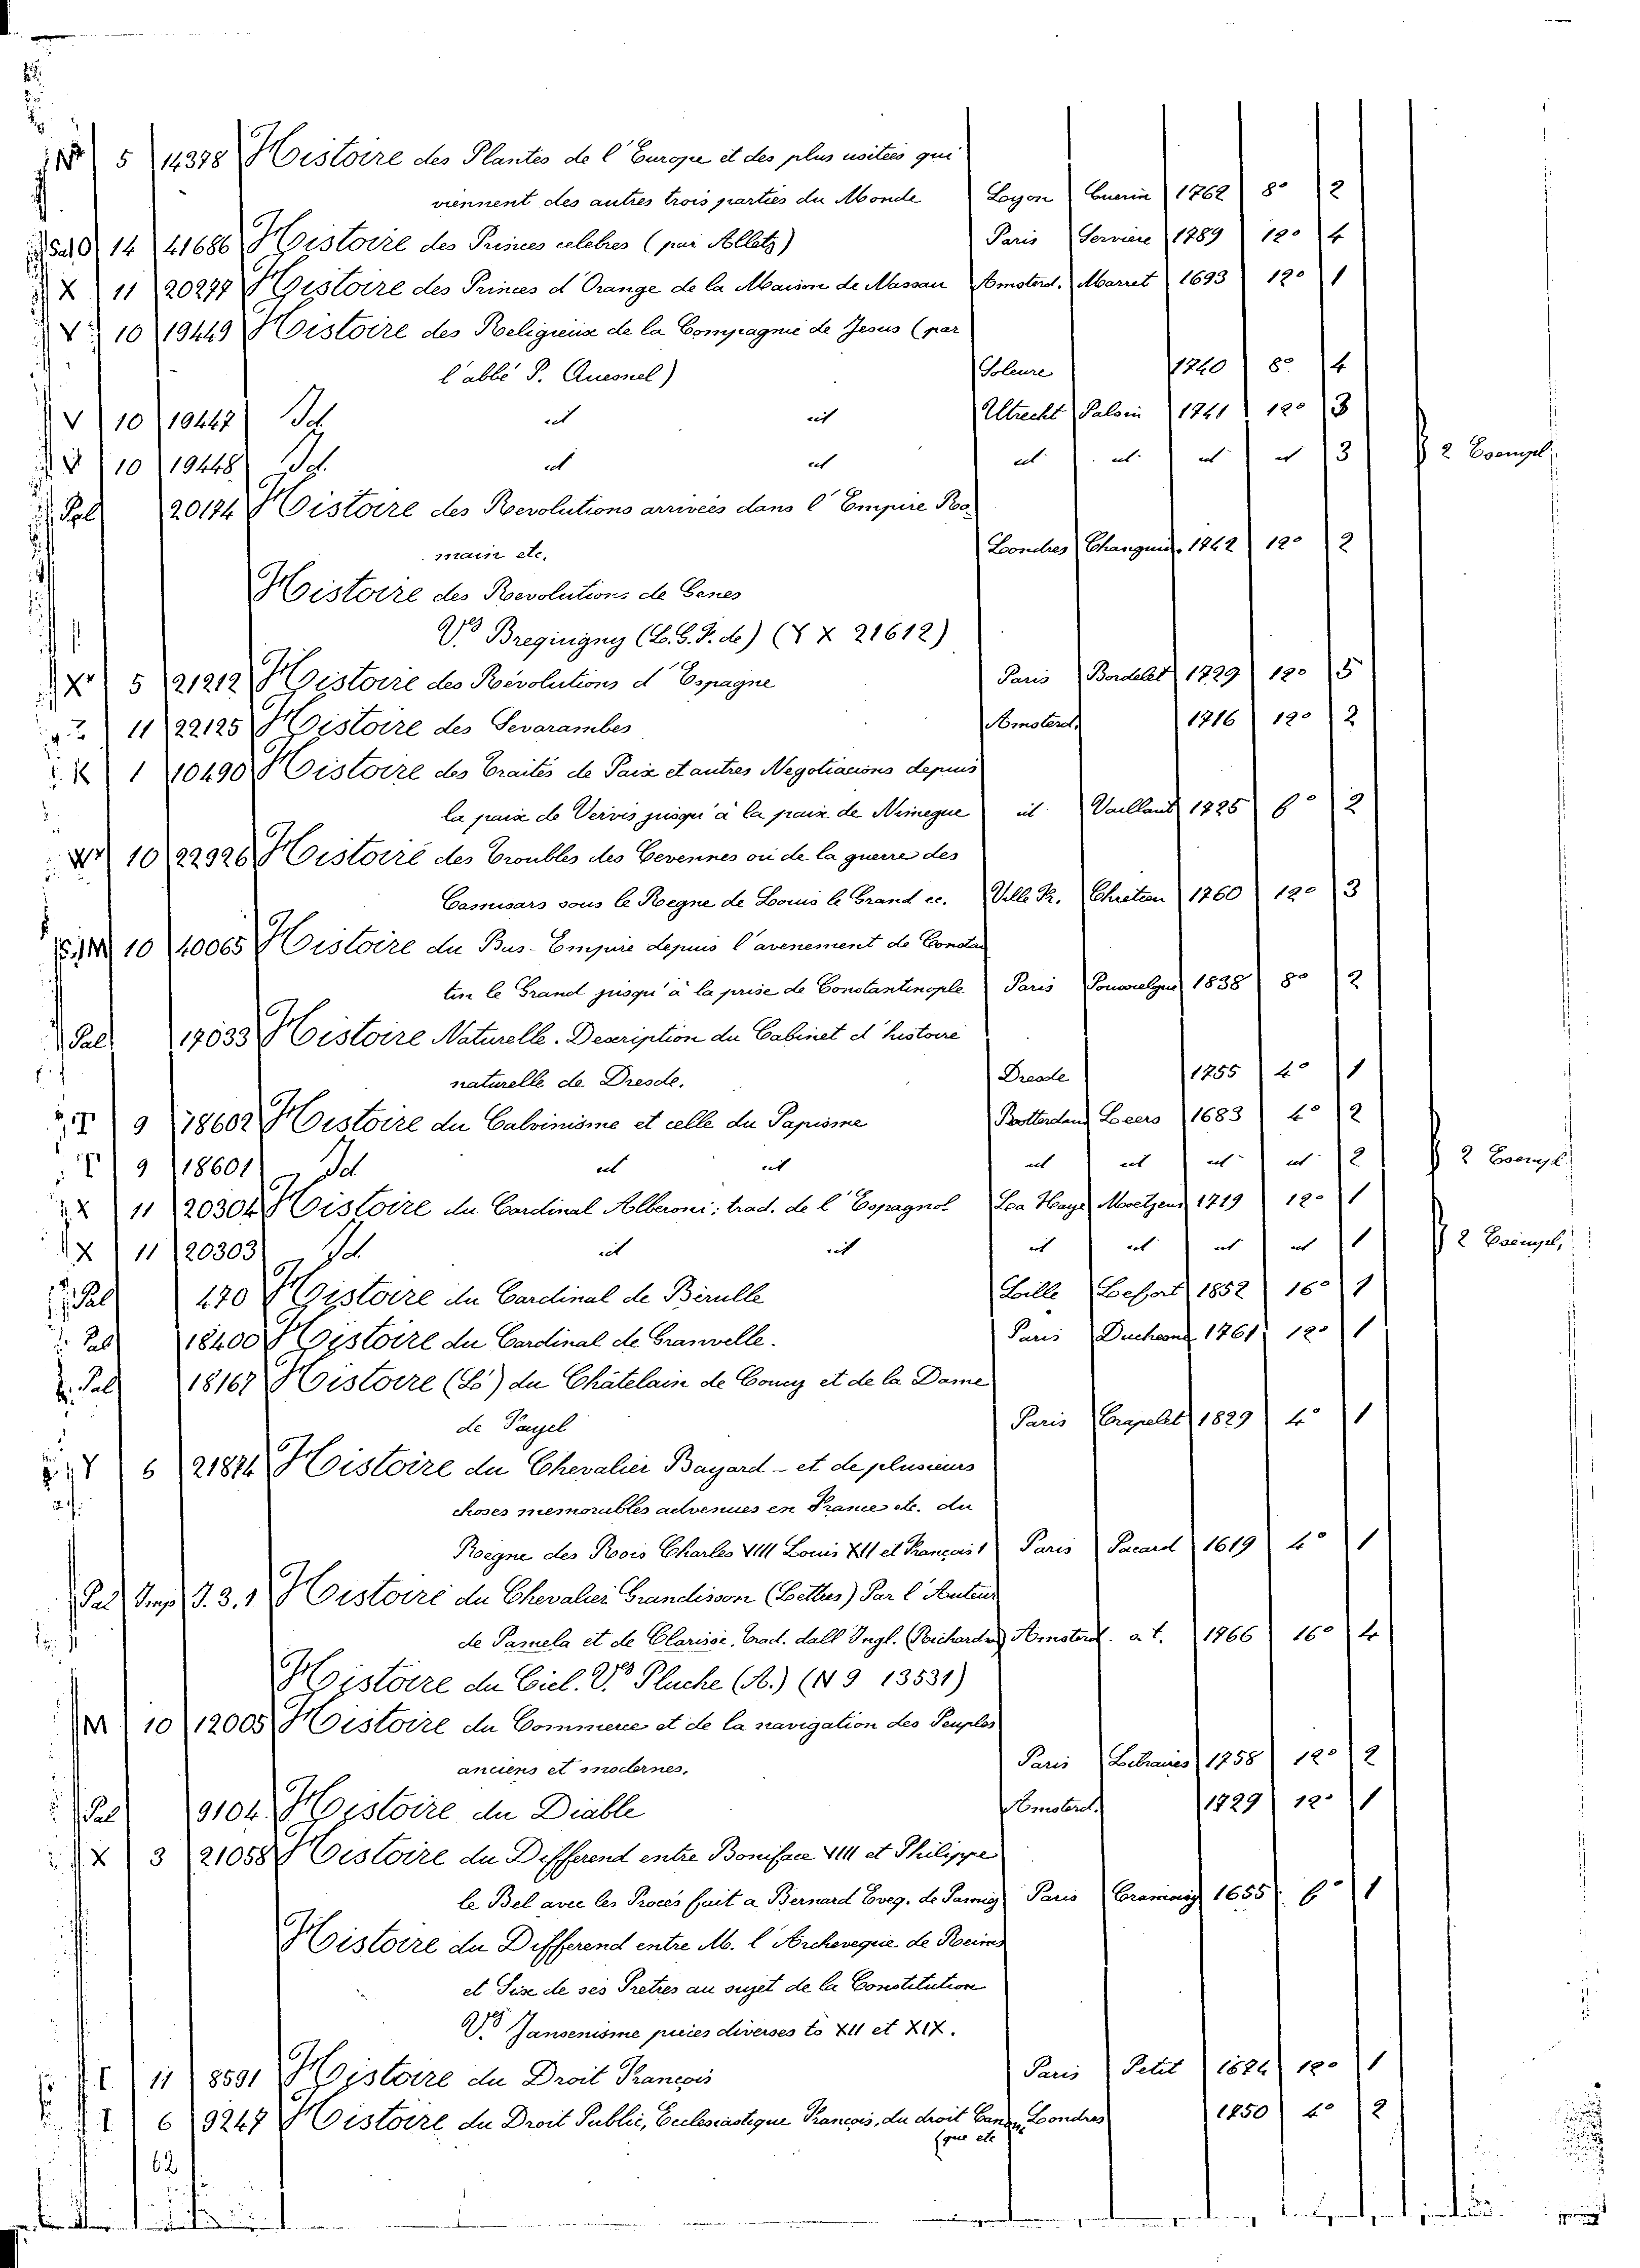 5 14378 Histoire des Plantes de l'Europe et des plus usitées qui
viennent des autres trois parties du Monde Lyon 1762 8° 2
14 41686 Histoire des Princes celebres (par Alletz) Paris Serviere 1789 12° 4
X 11 20277 Histoire des Princes d'Orange de la Maison de Nassau Amsterd. Marret 1693 12° 1
V 10 19449 Histoire des Religieux de la Compagnie de Jesus (par
l'abbé P. Quesnel) Soleure 1740 8° 4
V 10 19447 Id. id id Utrecht Palsin 1741 12° 3
V 10 19448 Id. id id id id id id 3 2 Esempl.
Pal 20174 Histoire des Revolutions arrivées dans l'Empire Ro-
main etc. Londres 1742 12° 2
Histoire des Revolutions de Genes
V° Breguigny (L. G. F. de) (X 21612)
X 5 21212 Histoire des Révolutions d'Espagne Paris Bordelet 1729 12° 5
11 22125 Histoire des Sevarambes Amsterd. 1716 12° 2
K 1 10490 Histoire des Traités de Paix et autres Negotiacions depuis
la paix de Vervis jusqu'à la paix de Nimegue id Vaillant 1725 f° 2
10 22926 Histoire des Troubles des Cevennes ou de la guerre des
Camisars sous le Regne de Louis le Grand ec. Ville Fr. Chretien 1760 12° 3
10 40065 Histoire du Bas-Empire depuis l'avenement de Constan
tin le Grand jusqu'à la prise de Constantinople Paris 1838 8° 2
Pal 17033 Histoire Naturelle. Description du Cabinet d'histoire
naturelle de Dresde. Dresde 1755 4° 1
9 18602 Histoire du Calvinisme et celle du Papisme Rotterdam Leers 1683 4° 2
9 18601 Id id id id id id id 2 2 Esempl.
X 11 20304 Histoire du Cardinal Alberoni; trad. de l'Espagnol La Haye Moetjens 1719 12° 1
X 11 20303 Id. id id id id id id 1 2 Esempl.
Pal 470 Histoire du Cardinal de Bérulle Lille Lefort 1852 16° 1
Pal 18400 Histoire du Cardinal de Granvelle. Paris Duchesne 1761 12° 1
Pal 18167 Histoire (L') du Châtelain de Coucy et de la Dame
de Fayel Paris Crapelet 1829 4° 1
Y 6 21874 Histoire du Chevalier Bayard - et de plusieurs
choses memorables advenues en France etc. du
Regne des Rois Charles VIII Louis XII et François 1 Paris Pacard 1619 4° 1
Pal Imp J. 3. 1 Histoire du Chevalier Grandisson (Lettres) Par l'Auteur
de Pamela et de Clarisse, trad. dall'Ingl. (Richardson) Amsterd. a. t. 1766 16° 4
Histoire du Ciel. V° Pluche (A.) (N 9 13531)
M 10 12005 Histoire du Commerce et de la navigation des Peuples
anciens et modernes. Paris Libraires 1758 12° 2
Pal 9104 Histoire du Diable Amsterd. 1729 12° 1
X 3 21058 Histoire du Differend entre Boniface VIII et Philippe
le Bel avec les Procès fait a Bernard Eveq. de Pamiez Paris Cramoisy 1655 f° 1
Histoire du Differend entre M. l'Archeveque de Reims
et Six de ses Pretres au sujet de la Constitution
V° Jansenisme pieces diverses to XII et XIX.
I 11 8591 Histoire du Droit François Paris Petit 1674 12° 1
I 6 9247 Histoire du Droit Public, Ecclesiastique François, du droit Canon Londres 1750 4° 2
(que etc
62